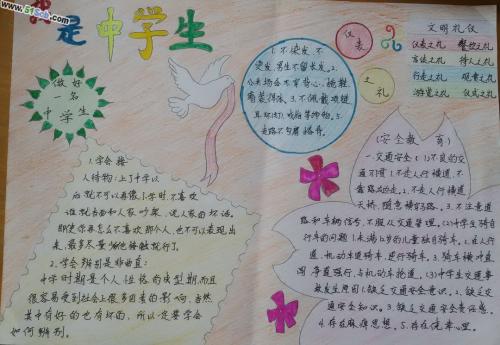 www.51Sch.com
我是中学生
做好
一名
中学生
1.学会接
人待物:上了中学以
后就不可以再像小学时不喜欢
谁就去面和人家吵架,说人家的坏话,
即使你再怎么不喜欢那个人,也不可以表现出
来,最多尽量与他接触就行了。
2.学会辨别是非曲直:
中学时期是个人性格的成型期,而且
很容易受到社会上很多因素的影响,当然
其中有好的也有坏的,所以一定要学会
如何辨别。
1.不染发,不
烫发,男生不留长发。2.
公共场合不穿背心、拖鞋,
着装得体。3.不佩戴项链
耳环、戒指等饰物。5.
走路不勾肩搭背。
仪表
之礼
文明礼仪
仪表之礼 餐饮之礼
言谈之礼 待人之礼
行走之礼 观赏之礼
游览之礼 仪式之礼
(安全教育)
一.交通安全:(1)不良的交
通习惯:1.不走人行横道、不
靠路右边走。2.不走人行横道
天桥,随意横穿马路。3.不注意道
路和车辆信号,不服从交通管理。(2)中学生骑自
行车的问题:1.未满12岁的儿童独自骑车。2.在人行
道、机动车道骑车,逆行骑车。3.骑车横冲直
闯,争道强行,与机动车抢道。(3)中学生交通事
故发生原因:1.缺乏交通安全意识。2.缺乏交
通安全知识。3.缺乏交通安全责任感。
4.存在麻痹思想。5.存在侥幸心里。